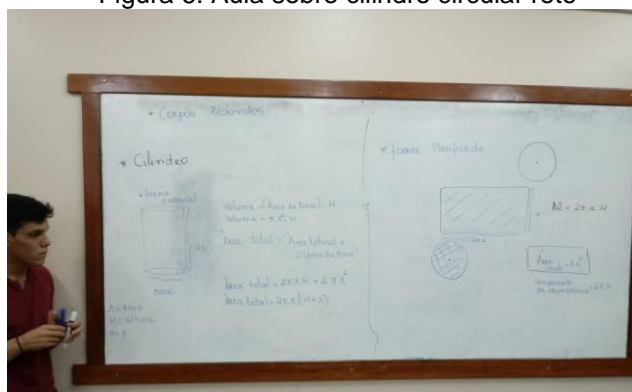 Figura 3: Aula sobre cilindro circular reto
• Corpos Redondos
* Cilindro
• forma
H
Base
r = Raio
H = altura
Volume = (Area da Base). H
Volume = π r². H
Área total = Área lateral +
2(area da Base)
Área total = 2π r H + 2 π r²
Área total = 2π r (H + r)
* forma Planificada
Al = 2π r. H
2πr
Área = π r²
Comprimento
da circunferência = 2π r